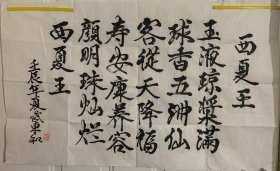 西夏王
玉液琼漿满
球香五洲仙
客從天降福
寿安康养容
顔明珠灿烂
西夏王
壬辰年夏